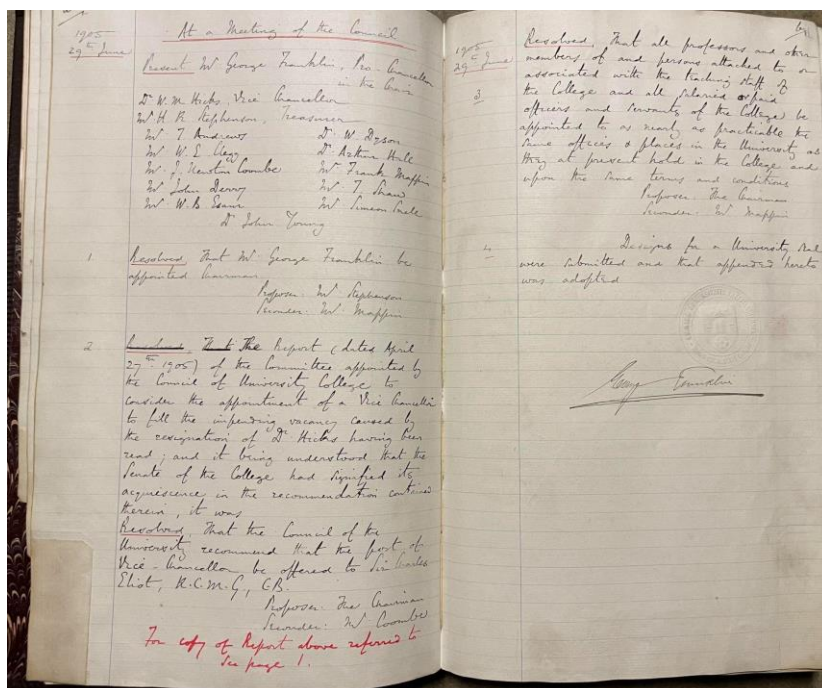 1905
29th June
At a Meeting of the Council
Present Mr George Franklin, Pro-Chancellor
in the Chair
Dr W. M. Hicks, Vice Chancellor
Mr H. K. Stephenson, Treasurer
Mr T Andrews Dr W. Dyson
Mr W. E. Clegg Dr Arthur Hall
Mr J. Newton Coombe Mr Frank Mappin
Mr John Derry Mr T Shaw
Mr W. B. Esam Mr Simeon Snell
Dr John Young
1 Resolved, That Mr George Franklin be
appointed Chairman
Proposer: Mr Stephenson
Seconder: Mr Mappin
2 Resolved, That The Report (dated April
27th 1905) of the Committee appointed by
the Council of University College to
consider the appointment of a Vice Chancellor
to fill the impending vacancy caused by
the resignation of Dr Hicks having been
read; and it being understood that the
Senate of the College had signified its
acquiescence in the recommendation contained
therein, it was
Resolved, That the Council of the
University recommend that the post of
Vice-Chancellor be offered to Sir Charles
Eliot, K.C.M.G., C.B.
Proposer: The Chairman
Seconder: Mr Coombe
For copy of Report above referred to
see page 1.
1905
29th J
3
Resolved, That all professors and other
members of and persons attached to or
associated with the teaching staff of
the College and all salaried or paid
officers and servants of the College be
appointed to as nearly as practicable the
same offices & places in the University as
they at present hold in the College and
upon the same terms and conditions
Proposer: The Chairman
Seconder: Mr Mappin
4 Designs for a University Seal
were submitted and that appended hereto
was adopted
George Franklin